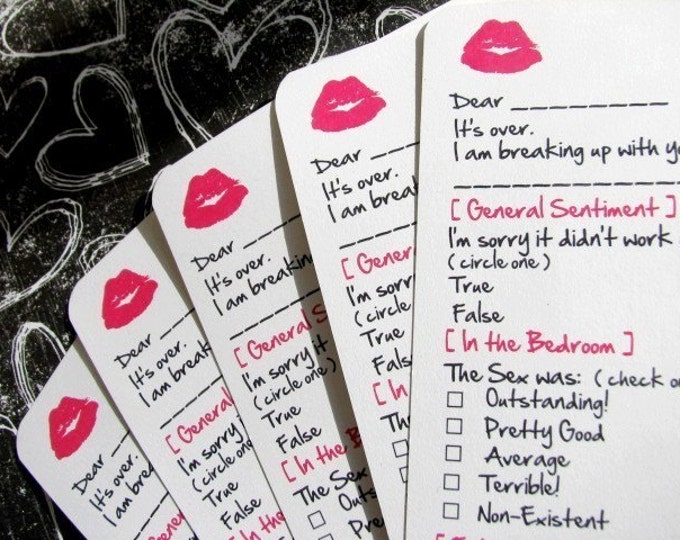 Dear _________
It's over.
I am breaking up with
[ General Sentiment ]
I'm sorry it didn't work
(circle one)
True
False
[ In the Bedroom ]
The Sex was: (check
Outstanding!
Pretty Good
Average
Terrible!
Non-Existent
Dear
It's over.
I am
[
I'm sorry
(circle
True
False
[ In
Dear
It's over.
I am breaking
[ General
I'm sorry it
(circle one)
True
False
[ In the
The Sex
Dear
It's over.
I am breaking
[ General
I'm sorry
(circle one)
True
False
[ In the
Dear
It's over.
I am